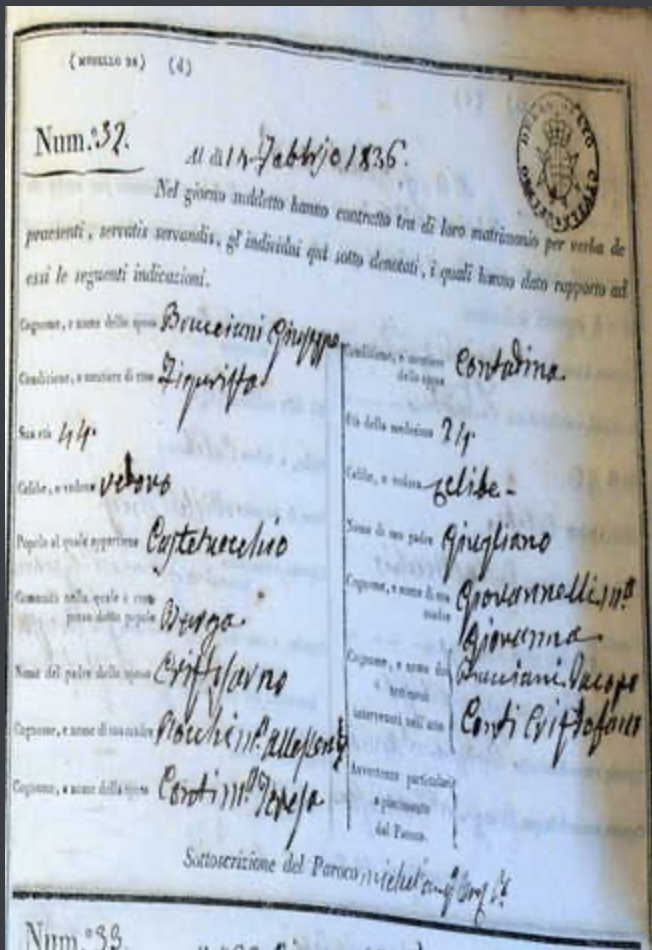 ( MODELLO 28 ) (d)
Num.° 32.
Al di 14 Febbrjo 1836.
Nel giorno suddetto hanno contratto tra di loro matrimonio per verba de
praesenti, servatis servandis, gl' individui quì sotto denotati, i quali hanno dato rapporto ad
essi le seguenti indicazioni.
Cognome, e nome dello sposo Bonciani Giuseppe
Condizione, e mestiere di esso Figurista
Sua età 44.
Celibe, o vedovo vedovo
Popolo al quale appartiene Castelvecchio
Comunità nella quale è com-
preso detto popolo Barga
Nome del padre dello sposo Cristofarno
Cognome, e nome di sua madre
Cognome, e nome della sposa Conti M.ª Teresa
Condizione, e mestiere
della sposa Contadina
Età della medesima 24.
Celibe, o vedova Celibe -
Nome di suo padre Giugliano
Cognome, e nome di sua
madre Giovannelli M.ª
Giovanna
Cognome, e nome dei
testimoni
intervenuti nell' atto
Jacopo
Conti Cristofano
Avvertenze particolari
a piacimento
del Paroco.
Sottoscrizione del Paroco
Num.° 33.